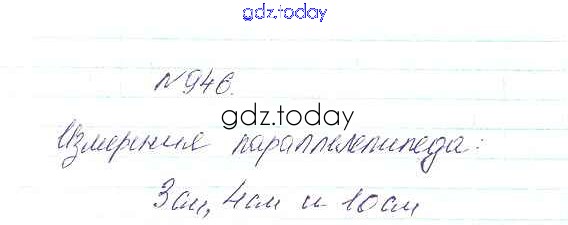 gdz.today
№946.
gdz.today
Измерения параллелепипеда:
3см, 4см и 10см